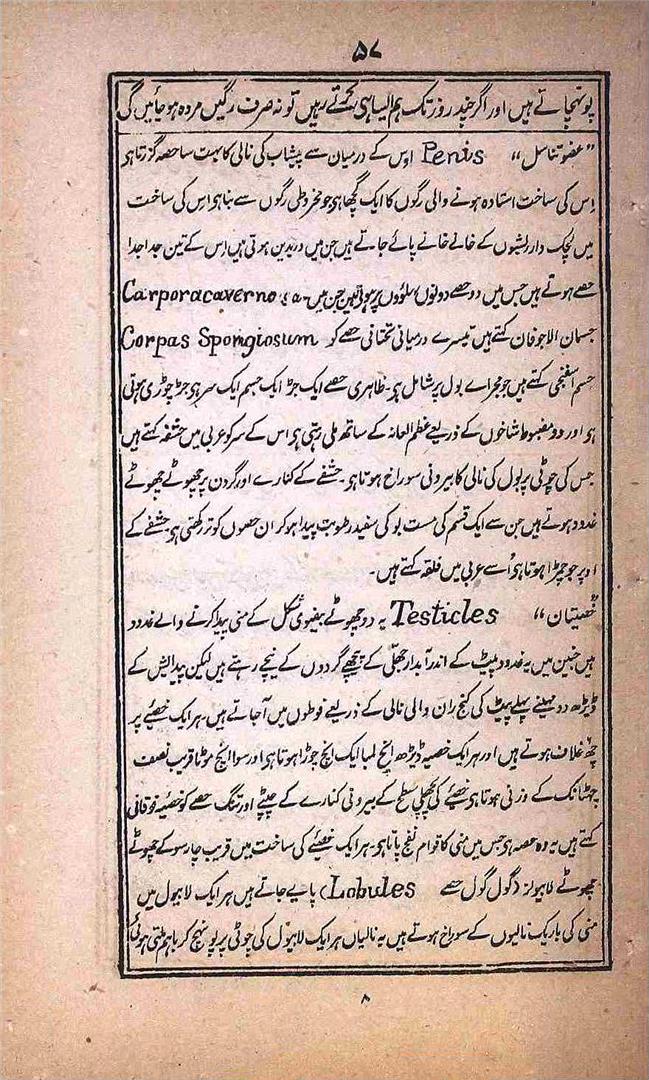 ۵۷
پونہچاتے ہیں اور اگر چند روز تک ہم ایسا ہی کرتے رہیں تو نہ صرف رگیں مردہ ہو جائیں گی
”عضو تناسل“ Penis اوس کے درمیان سے پیشاب کی نالی کا بہت سا حصہ گزرتا ہو
اس کی ساخت استادہ ہونے والی رگوں کا ایک گچھا ہو جو مخروطی رگوں سے بنا ہو اس کی ساخت
میں لچک دار ریشوں کے خانے خانے پائے جاتے ہیں جن میں وریدیں ہوتی ہیں اس کے تین جدا جدا
حصے ہوتے ہیں جس میں دو حصے دونوں پہلوؤں پر ہوتی ہیں جن میں Carporacaverno
جسمان الاجوفان کہتے ہیں تیسرے درمیانی تحتانی حصے کو Corpas Spomgiosum
جسم اسفنجی کہتے ہیں جو مجرائے بول پر شامل ہو۔ ظاہری حصے ایک جڑ ایک جسم ایک سر ہو جڑ چوڑی ہوتی
ہو اور دو مضبوط شاخوں کے ذریعے عظم العانہ کے ساتھ ملی رہتی ہو اس کے سر کو عربی میں حشفہ کہتے ہیں
جس کی چوٹی پر بول کی نالی کا بیرونی سوراخ ہوتا ہو۔ حشفے کے کنارے اور گردن پر چھوٹے چھوٹے
غدود ہوتے ہیں جن سے ایک قسم کی مست بو کی سفید رطوبت پیدا ہو کر ان حصوں کو تر رکھتی ہو۔ حشفے کے
اوپر جو چمڑا ہوتا ہو اُسے عربی میں قلفہ کہتے ہیں۔
”خصیتان“ Testicles یہ دو چھوٹے بیضوی شکل کے منی پیدا کرنے والے غدود
ہیں جنین میں یہ غدود پیٹ کے اندر آبدار جھلی کے پیچھے گردوں کے نیچے رہتے ہیں لیکن پیدائش کے
ڈیڑھ دو مہینے پہلے پیٹ کی کنج ران والی نالی کے ذریعے فوطوں میں آ جاتے ہیں۔ ہر ایک خصیئے پر
چھ غلاف ہوتے ہیں اور ہر ایک خصیہ ڈیڑھ انچ لمبا ایک انچ چوڑا ہوتا ہو اور سوا انچ موٹا قریب نصف
چھٹانک کے وزنی ہوتا ہو خصیئے کی پچھلی سطح کے بیرونی کنارے کے چپٹے اور تنگ حصے کو خصیہ فوقانی
کہتے ہیں یہ وہ حصہ ہو جس میں منی کا قوام نضج پاتا ہو۔ ہر ایک خصیئے کی ساخت میں قریب چار سو کے چھوٹے
چھوٹے لابیولز (گول گول حصے Lobules) پایے جاتے ہیں ہر ایک لابیول میں
منی کی باریک نالیوں کے سوراخ ہوتے ہیں یہ نالیاں ہر ایک لابیول کی چوٹی پر پونہچ کر باہم ملتی ہوئی
۸